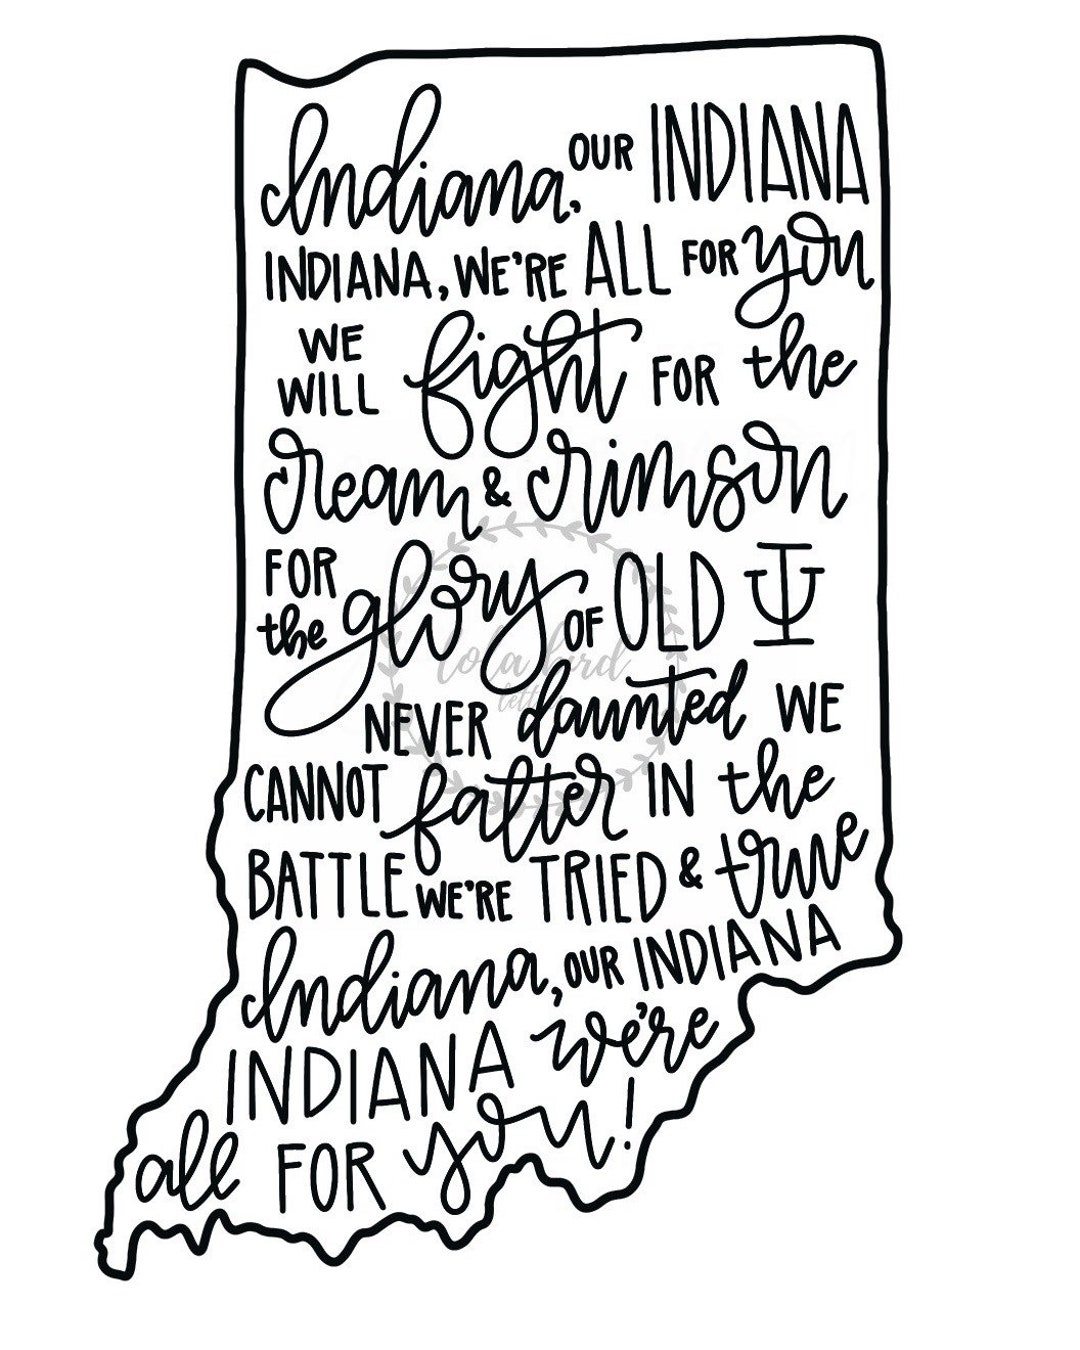 Indiana, OUR INDIANA
INDIANA, WE'RE ALL FOR you
WE WILL fight FOR the
cream & crimson
FOR the glory OF OLD IU
NEVER daunted WE
CANNOT falter IN the
BATTLE WE'RE TRIED & true
Indiana, OUR INDIANA
INDIANA we're
all FOR you!
lola bird